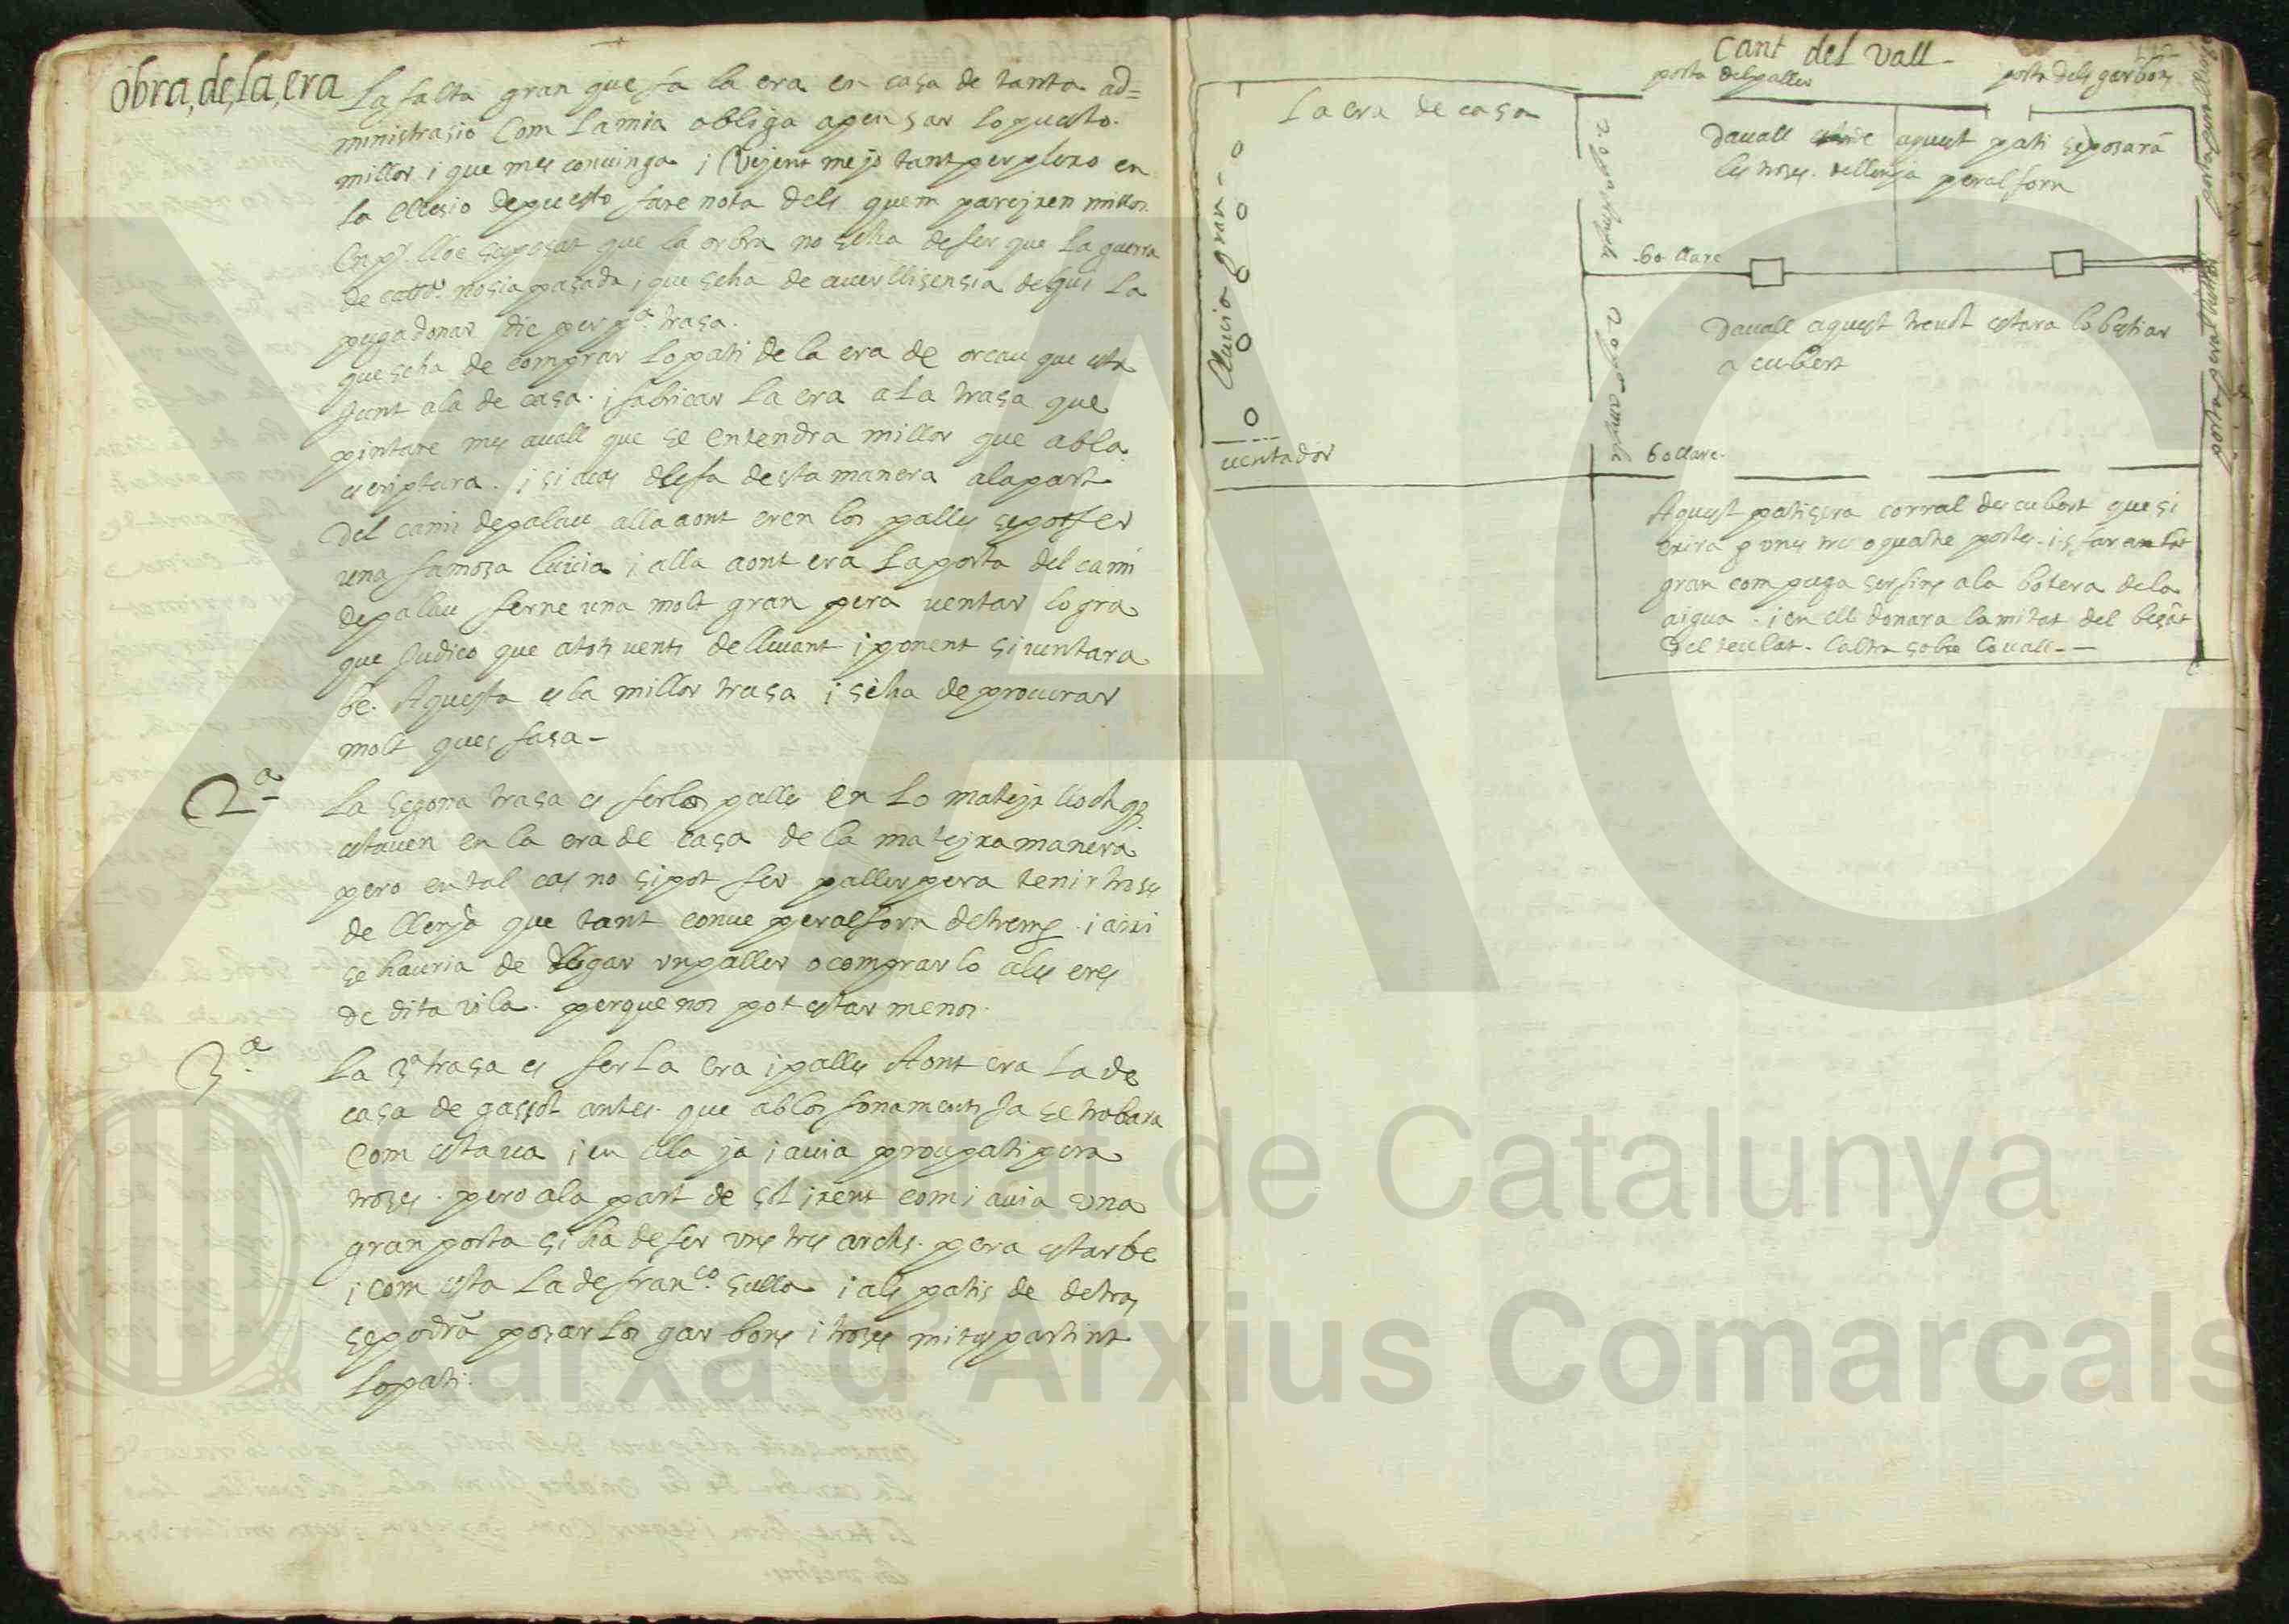 obra, de, la, era
La falta gran que fa la era en casa de tanta ad=
ministrasio Com la mia obliga a pensar lo puesto
millor i que mes convinga i Vejent me jo tant perplexo en
la ellesio de puesto fare nota dels quem parejxen millor
En pr. lloc suposat que la obra no seha de fer que la guerra
de no sia pasada i que seha de aver llisensia de qui la
puga donar dic per pa. trasa.
que seha de comprar lo pati de la era de orcau que esta
Junt a la de casa. i fabricar la era a la trasa que
pintare mes avall que se entendra millor que ab la
escriptura. i si acas desta manera a la part
Del cami de palau alla aont eren los pallés se pot fer
una famosa lluvia i alla aont era la porta del cami
de palau ferne una molt gran pera ventar lo gra
que Judico que a tots vents de llevant i ponent si ventara
be. Aquesta es la millor trasa i seha de procurar
molt ques fasa -
2a
La segona trasa es fer los pallés en lo matejx lloch q
estaven en la era de casa de la matejxa manera
pero en tal cas no si pot fer paller pera tenir troses
de llenya que tant conve peral forn de trems. i aixi
se hauria de llogar un paller o comprar lo a les eres
de dita vila. perque nos pot estar menos.
3a
La 3a trasa es fer la era i pallés Aont era la de
casa de gassol antes. que ab los fonaments Ja se trobara
Com estava i en ella ja i avia prou pati pera
troses. pero a la part de sol ixent com i avia una
gran porta si ha de fer uns tres archs. pera estar be
i com esta la de franco. Sulla i als patis de detras
se podrá posar los garbons i troses mitas partint
lo pati.
Cant del vall -
porta del paller
porta dels garbons
La era de casa
Davall aquest pati se posará
les troses. de llenya peral forn
60 llarc
Davall aquest trendt estara lo bestiar
a cubert
ventador
60 llarc.
Aquest pati sera corral descubert que si
exira p unes tres o quatre portes. i es fara tan
gran com puga ser fins a la botera de la
aigua. i en ell donara la mitat del besát
Del teulat. laltra sobre lo vall - -